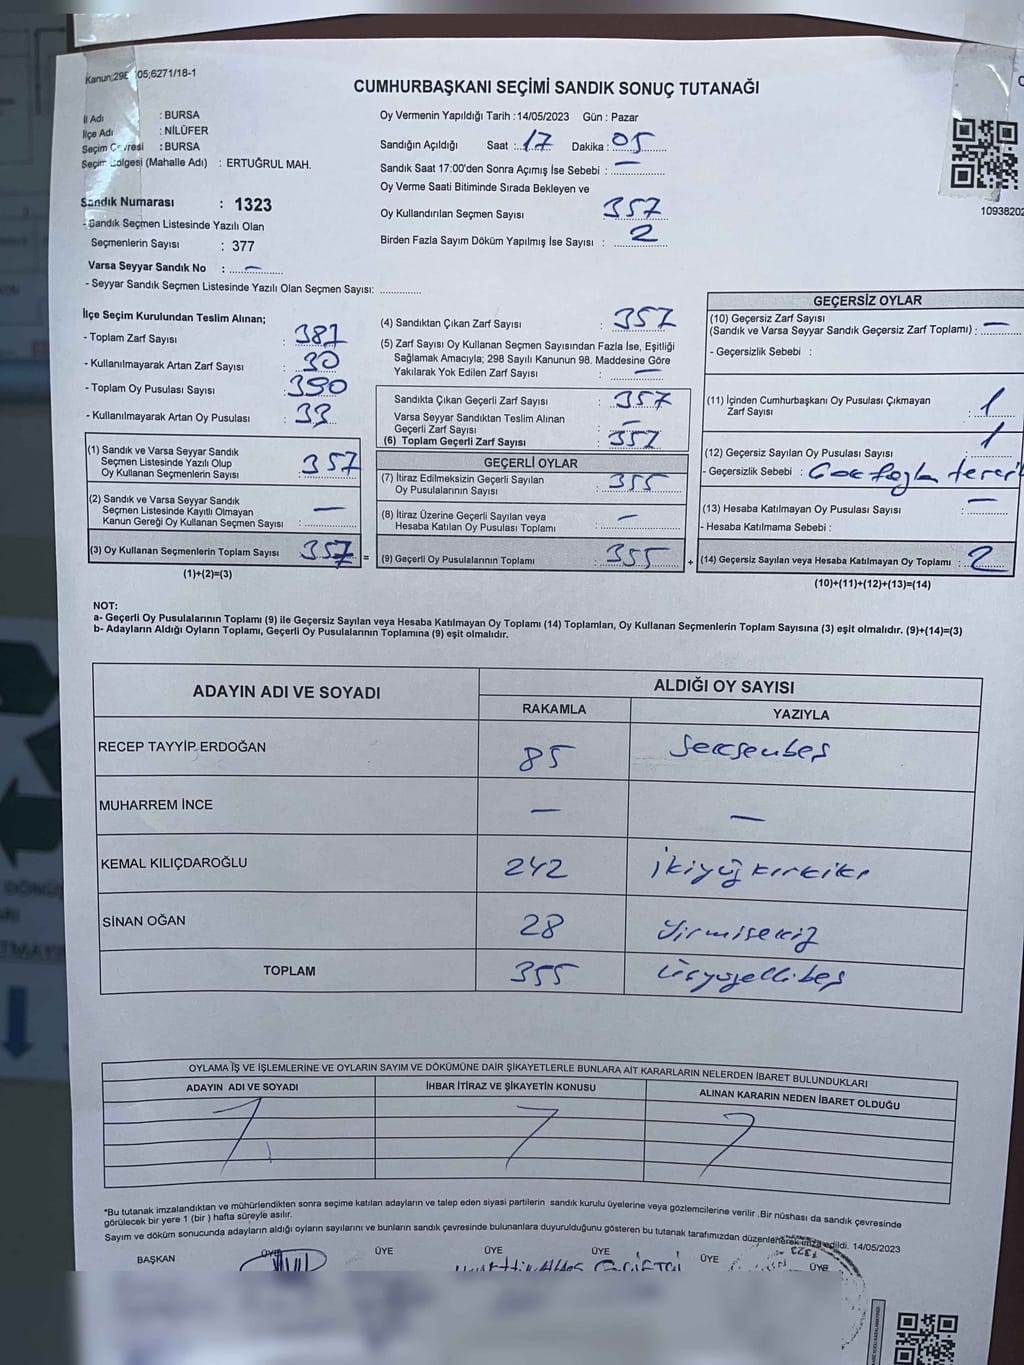 CUMHURBAŞKANI SEÇİMİ SANDIK SONUÇ TUTANAĞI
İl Adı : BURSA
İlçe Adı : NİLÜFER
: BURSA
(Mahalle Adı) : ERTUĞRUL MAH.
Oy Vermenin Yapıldığı Tarih : 14/05/2023 Gün : Pazar
Sandığın Açıldığı Saat : 17 Dakika : 05
Sandık Saat 17:00'den Sonra Açımış İse Sebebi : —
Oy Verme Saati Bitiminde Sırada Bekleyen ve
Oy Kullandırılan Seçmen Sayısı 357
Birden Fazla Sayım Döküm Yapılmış İse Sayısı : 2
10938202
Sandık Numarası : 1323
- Sandık Seçmen Listesinde Yazılı Olan
Seçmenlerin Sayısı : 377
Varsa Seyyar Sandık No : —
- Seyyar Sandık Seçmen Listesinde Yazılı Olan Seçmen Sayısı:
İlçe Seçim Kurulundan Teslim Alınan;
- Toplam Zarf Sayısı : 387
- Kullanılmayarak Artan Zarf Sayısı : 30
- Toplam Oy Pusulası Sayısı : 390
- Kullanılmayarak Artan Oy Pusulası : 33
(1) Sandık ve Varsa Seyyar Sandık
Seçmen Listesinde Yazılı Olup
Oy Kullanan Seçmenlerin Sayısı : 357
(2) Sandık ve Varsa Seyyar Sandık
Seçmen Listesinde Kayıtlı Olmayan
Kanun Gereği Oy Kullanan Seçmen Sayısı : —
(3) Oy Kullanan Seçmenlerin Toplam Sayısı 357 =
(1)+(2)=(3)
(4) Sandıktan Çıkan Zarf Sayısı : 357
(5) Zarf Sayısı Oy Kullanan Seçmen Sayısından Fazla İse, Eşitliği
Sağlamak Amacıyla; 298 Sayılı Kanunun 98. Maddesine Göre
Yakılarak Yok Edilen Zarf Sayısı : —
Sandıkta Çıkan Geçerli Zarf Sayısı : 357
Varsa Seyyar Sandıktan Teslim Alınan
Geçerli Zarf Sayısı : —
(6) Toplam Geçerli Zarf Sayısı : 357
GEÇERLİ OYLAR
(7) İtiraz Edilmeksizin Geçerli Sayılan
Oy Pusulalarının Sayısı : 355
(8) İtiraz Üzerine Geçerli Sayılan veya
Hesaba Katılan Oy Pusulası Toplamı : —
(9) Geçerli Oy Pusulalarının Toplamı : 355 +
GEÇERSİZ OYLAR
(10) Geçersiz Zarf Sayısı
(Sandık ve Varsa Seyyar Sandık Geçersiz Zarf Toplamı) : —
- Geçersizlik Sebebi :
(11) İçinden Cumhurbaşkanı Oy Pusulası Çıkmayan
Zarf Sayısı : 1
(12) Geçersiz Sayılan Oy Pusulası Sayısı : 1
- Geçersizlik Sebebi :
(13) Hesaba Katılmayan Oy Pusulası Sayısı : —
- Hesaba Katılmama Sebebi :
(14) Geçersiz Sayılan veya Hesaba Katılmayan Oy Toplamı : 2
(10)+(11)+(12)+(13)=(14)
NOT:
a- Geçerli Oy Pusulalarının Toplamı (9) ile Geçersiz Sayılan veya Hesaba Katılmayan Oy Toplamı (14) Toplamları, Oy Kullanan Seçmenlerin Toplam Sayısına (3) eşit olmalıdır. (9)+(14)=(3)
b- Adayların Aldığı Oyların Toplamı, Geçerli Oy Pusulalarının Toplamına (9) eşit olmalıdır.
ADAYIN ADI VE SOYADI ALDIĞI OY SAYISI
RAKAMLA YAZIYLA
RECEP TAYYİP ERDOĞAN 85 seksenbeş
MUHARREM İNCE — —
KEMAL KILIÇDAROĞLU 242 ikiyüzkırkiki
SİNAN OĞAN 28 Yirmisekiz
TOPLAM 355 Üçyüzellibeş
OYLAMA İŞ VE İŞLEMLERİNE VE OYLARIN SAYIM VE DÖKÜMÜNE DAİR ŞİKAYETLERLE BUNLARA AİT KARARLARIN NELERDEN İBARET BULUNDUKLARI
ADAYIN ADI VE SOYADI İHBAR İTİRAZ VE ŞİKAYETİN KONUSU ALINAN KARARIN NEDEN İBARET OLDUĞU
*Bu tutanak imzalandıktan ve mühürlendikten sonra seçime katılan adayların ve talep eden siyasi partilerin sandık kurulu üyelerine veya gözlemcilerine verilir .Bir nüshası da sandık çevresinde
görülecek bir yere 1 (bir ) hafta süreyle asılır.
Sayım ve döküm sonucunda adayların aldığı oyların sayılarını ve bunların sandık çevresinde bulunanlara duyurulduğunu gösteren bu tutanak tarafımızdan düzenlenerek imza edildi. 14/05/2023
BAŞKAN ÜYE ÜYE ÜYE ÜYE ÜYE ÜYE